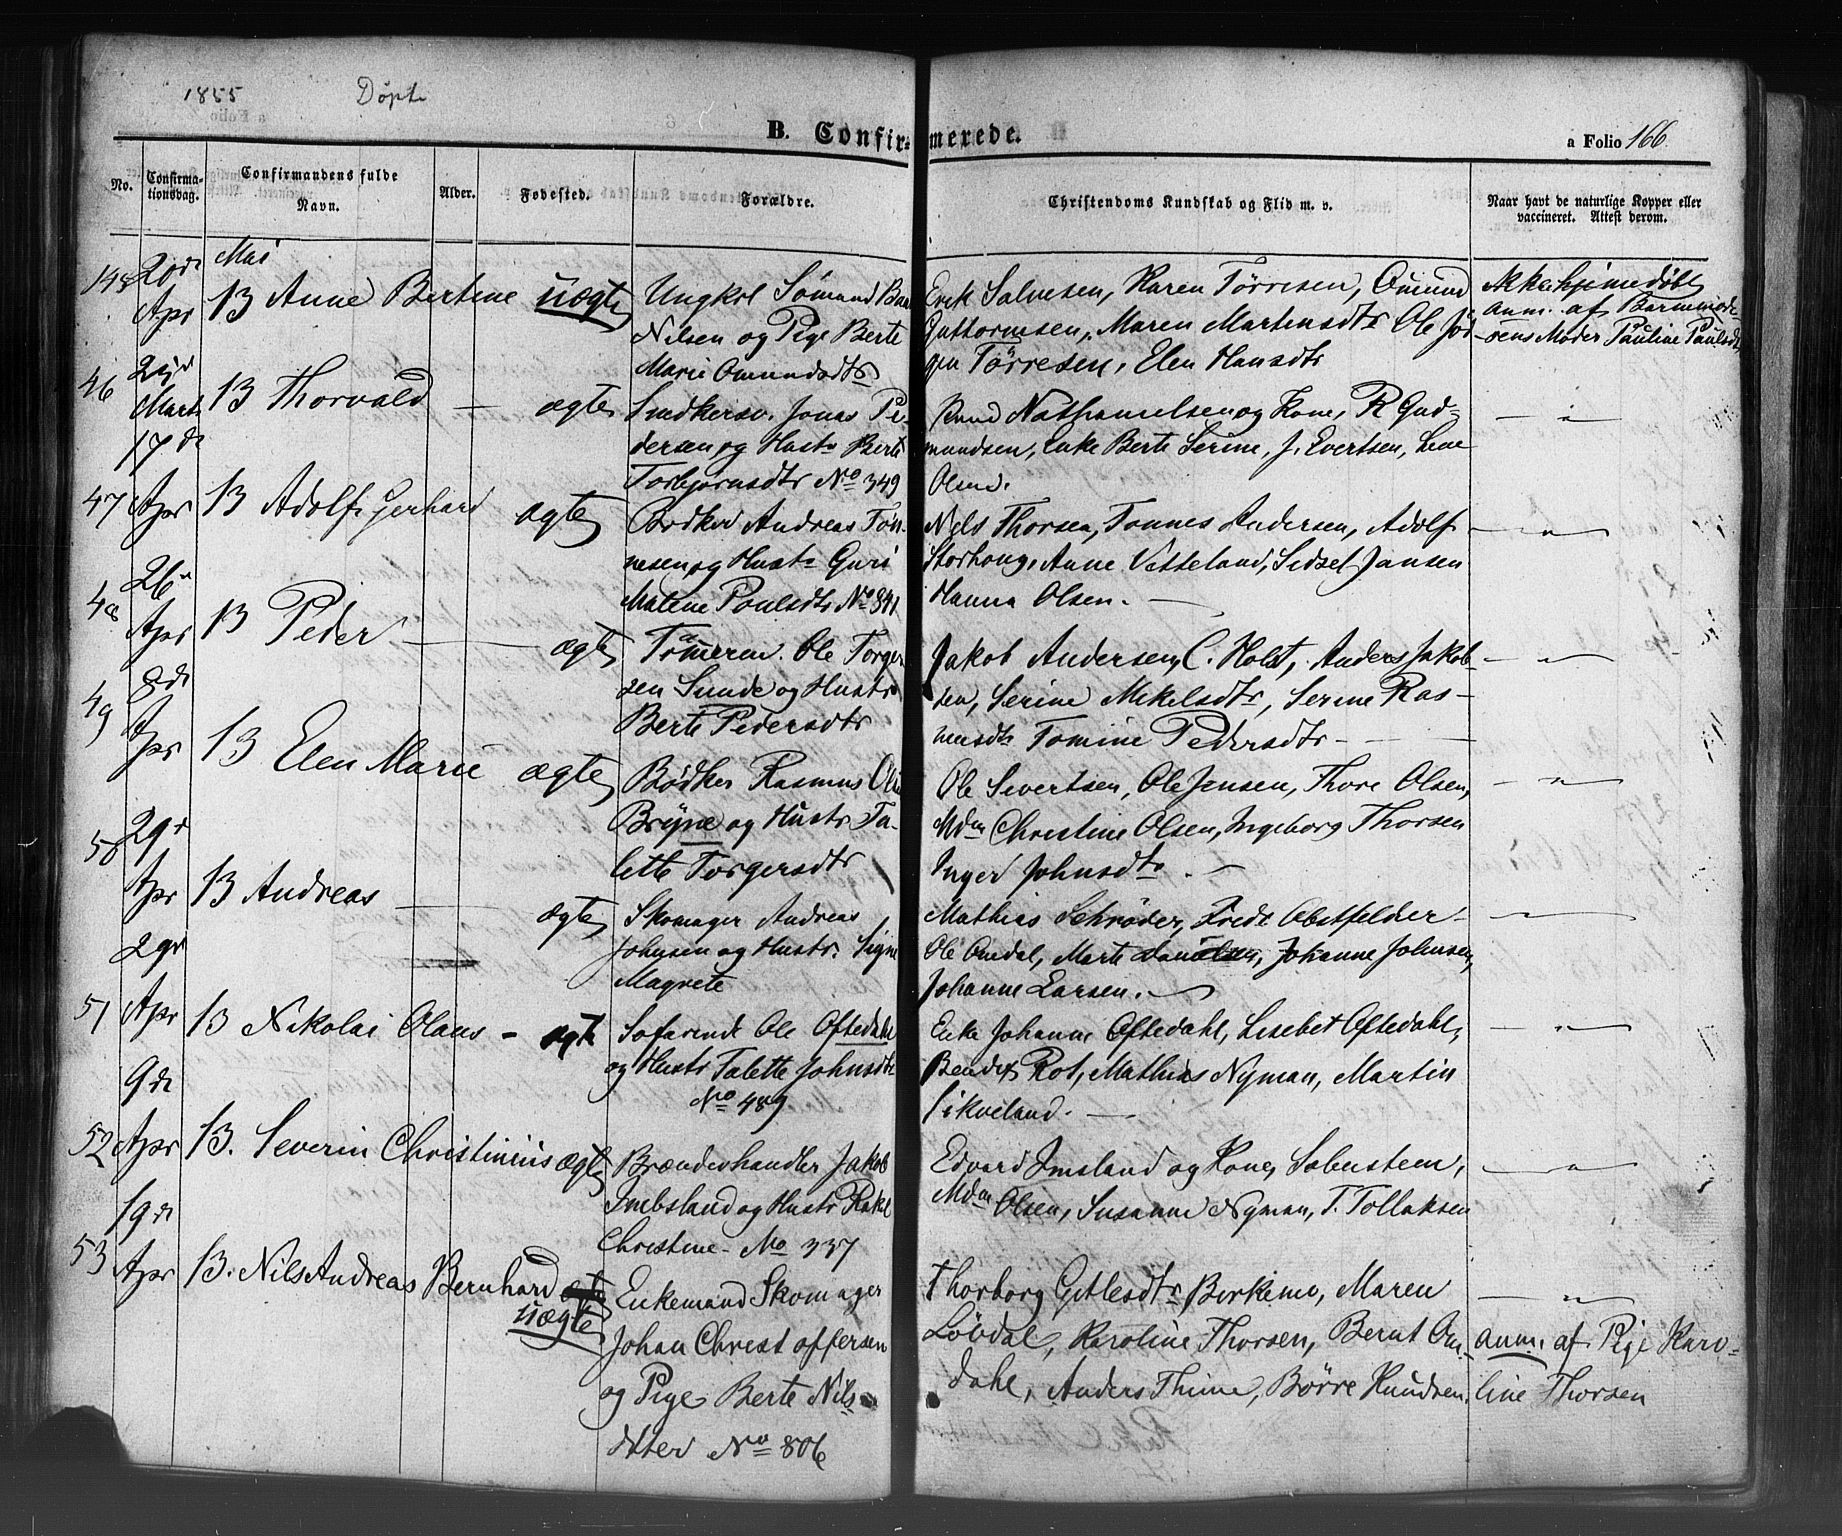 1855 Döpt
B. Confirmerede. a Folio 166.
No. Confirmationsdag. Confirmandens fulde Navn. Alder. Fødested. Forældre. Christendoms Kundskab og Flid m. v. Naar havt de naturlige Kopper eller vaccineret. Attest derom.
Mai
145 20de Apr 13 Anne Bertine uægte
Ungkol Sömand
Nilsen og Pige Berte
Marie Omundsdtr
Erik Salvesen, Karen Törresen, Omund
Guttormsen, Maren Martensdtr Ole Jör
gen Törresen, Elen Hansdtr
Ikke hjemedöbt
anm. af Barnemode
rens Moder Pauline Paulsdt
46 Marts 13 Thorvald — ægte
Snedkersv. Jonas Pe-
dersen og Hustr Berte
Torbjørnsdtr No 349
Knud Nathanielsen og Kone, R Gud-
mundsen, Enke Berte Serine, J. Evertsen, Lene
Olsen.
— " —
17de
47 Apr 13 Adolf Gerhard ægte
Bødker Andreas Tön-
nesen og Hustr Guri
Malene Poulsdtr No 841
Nels Thorsen, Tonnes Andersen, Adolf
Storhoug, Anne Vetteland, Sidsel Jansen
Hanna Olsen. —
— " —
26
48 Apr 13 Peder — ægte
Tömerm. Ole Torger
sen Sunde og Hustr
Berte Pedersdtr
Jakob Andersen, C. Holst, Anders Jakob-
sen, Serine Mekelsdtr, Serine Ras-
musdtr Tomine Pedersdtr —
— " —
8de
49 Apr 13 Elen Marie ægte
Bödker Rasmus Olse
Bryne og Hustr Ta-
lette Torgersdtr
Ole Sivertsen, Ole Jensen, Thore Olsen,
Mdm Christine Olsen, Ingeborg Thorsen
Inger Johnsdtr. —
— " —
29
50 Apr 13 Andreas — ægte
Skomager Andreas
Johnsen og Hustr. Signe
Magrete
Mathias Schröder, Fredr Obstfelder
Ole Omdal, Marte Danielsen, Johanne Johnsen,
Johanne Larsen. —
29
51 Apr 13 Nikolai Olaus - ægte
Sofarende Ole Oftedahl
og Hustr Talette Johnsdtr
No 489
Enke Johanne Oftedahl, Lisebet Oftedahl,
Bendix Rot, Mathias Nyman, Martin
Sikveland. —
— " —
9de
52 Apr 13. Severin Christinius ægte
Brændevhandler Jakob
Imbsland og Hustr Rakel
Christine - No 337
Edvard Imsland og Kone, Sabenstein,
Mdm Olsen, Susanne Nyman, T. Tollaksen
— " —
19de
53 Apr 13. Nils Andreas Bernhard uægte
Enkemand Skomager
Johan Christoffersen
og Pige Berte Nils
datter No 806
Thorborg Gitlesdtr Birkemo, Maren
Lövdal, Karoline Thorsen, Bernt Om-
dahl, Anders Thime, Börre Knudsen.
— " —
anm. af Pige Karo-
line Thorsen